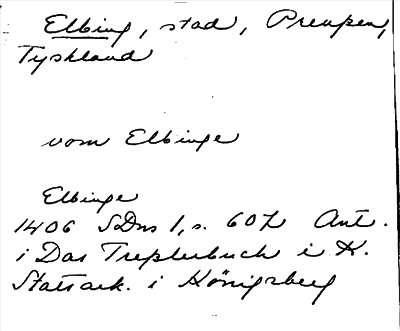 Elbing, stad, Preuſsen,
Tyskland
vom Elbinge
Elbinge
1406 SDns 1, s. 607 Ant.
i Das Treſslerbuch i K.
Statsark. i Königsberg